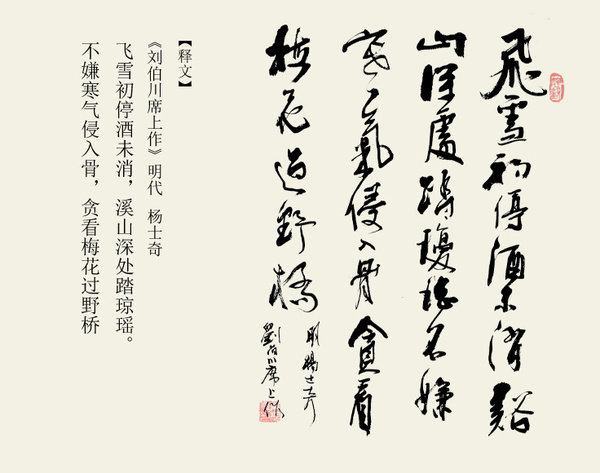 飛雪初停酒未消谿
山深處踏瓊瑤不嫌
寒氣侵入骨貪看
梅花過野橋
明楊士奇
劉伯川席上作
【释文】
《刘伯川席上作》 明代 杨士奇
飞雪初停酒未消，溪山深处踏琼瑶。
不嫌寒气侵入骨，贪看梅花过野桥